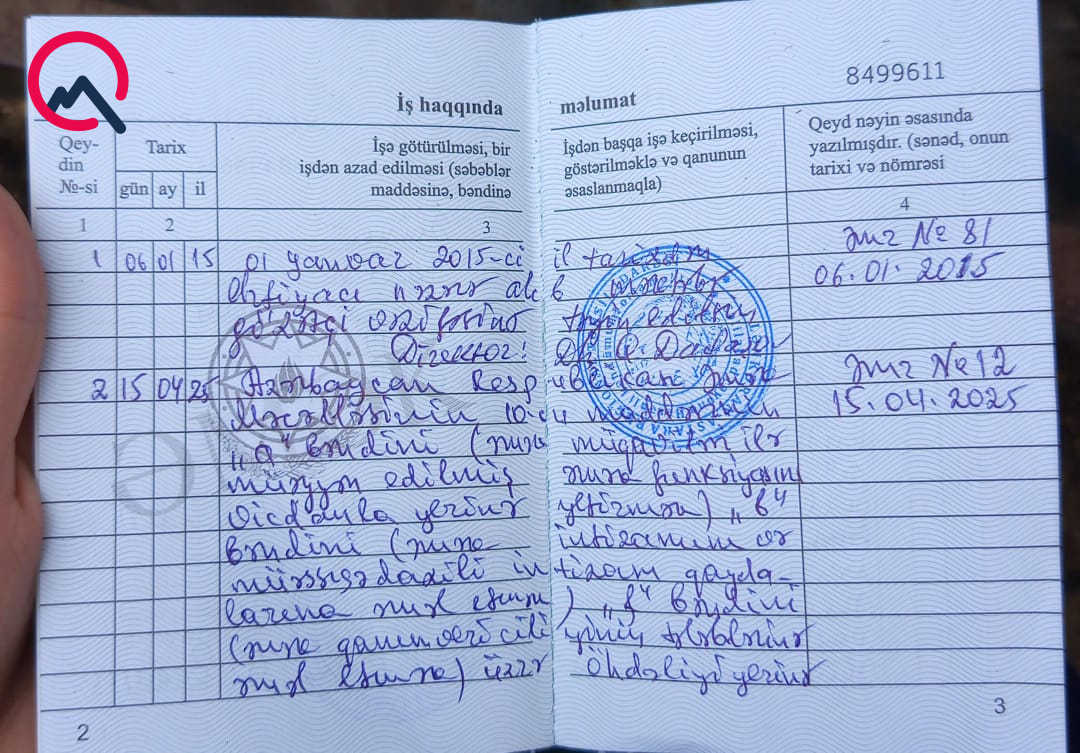 8499611
İş haqqında məlumat
Qey-
din
№-si
Tarix
gün ay il
İşə götürülməsi, bir
işdən azad edilməsi (səbəblər
maddəsinə, bəndinə
İşdən başqa işə keçirilməsi,
göstərilməklə və qanunun
əsaslanmaqla)
Qeyd nəyin əsasında
yazılmışdır. (sənəd, onun
tarixi və nömrəsi
1 2 3 4
1 06 01 15 01 yanvar 2015-ci il tarixdən əmr № 81
ehtiyacı nəzərə alıb 06.01.2015
gözətçi vəzifəsinə təyin edilsin
Direktor:
2 15 04 25 Azərbaycan Respublikası Əmək əmr № 12
Məcəlləsinin 10-cu maddəsinin 15.04.2025
„a" bəndini (əmək müqaviləsi ilə
müəyyən edilmiş əmək funksiyasını
vicdanla yerinə yetirmək) „b"
bəndini (əmək intizamına və
müəssisədaxili intizam qayda-
larına əməl etmək) „f" bəndini
(əmək qanunvericiliyinin tələblərinə
əməl etmək) üzrə öhdəliyi yerinə
2
3